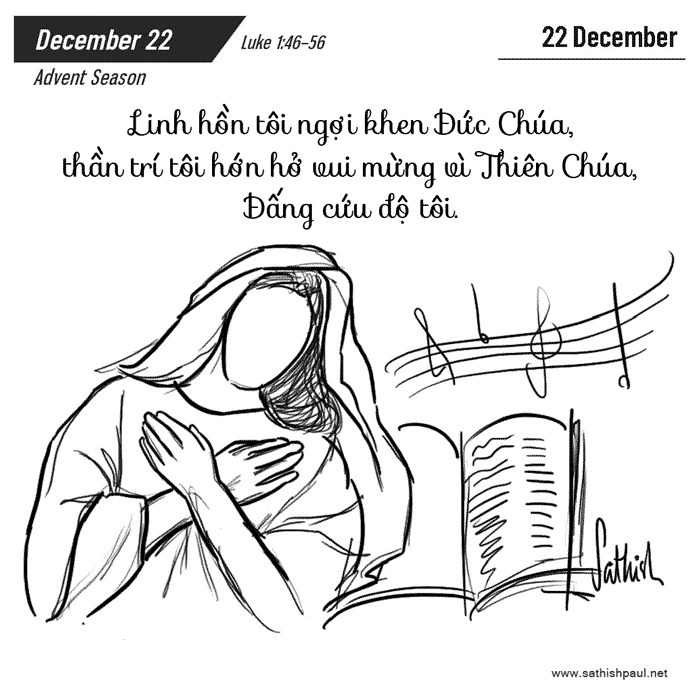 December 22
Luke 1:46–56
22 December
Advent Season
Linh hồn tôi ngợi khen Đức Chúa,
thần trí tôi hớn hở vui mừng vì Thiên Chúa,
Đấng cứu độ tôi.
Sathish
www.sathishpaul.net